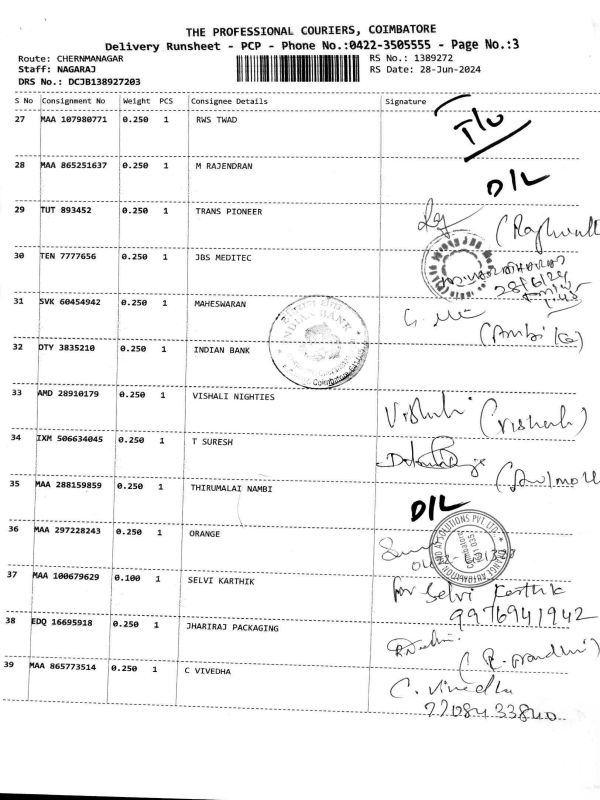 THE PROFESSIONAL COURIERS, COIMBATORE
Delivery Runsheet - PCP - Phone No.:0422-3505555 - Page No.:3
Route: CHERNMANAGAR RS No.: 1389272
Staff: NAGARAJ RS Date: 28-Jun-2024
DRS No.: DCJB138927203
S No Consignment No Weight PCS Consignee Details Signature
27 MAA 107980771 0.250 1 RWS TWAD
28 MAA 865251637 0.250 1 M RAJENDRAN D/L
29 TUT 893452 0.250 1 TRANS PIONEER
30 TEN 7777656 0.250 1 JBS MEDITEC
28/6/24
31 SVK 60454942 0.250 1 MAHESWARAN
INDIAN BANK
32 DTY 3835210 0.250 1 INDIAN BANK
33 AMD 28910179 0.250 1 VISHALI NIGHTIES
34 IXM 506634045 0.250 1 T SURESH
35 MAA 288159859 0.250 1 THIRUMALAI NAMBI D/L
36 MAA 297228243 0.250 1 ORANGE
37 MAA 100679629 0.100 1 SELVI KARTHIK for Selvi Karthik
9976941942
38 EDQ 16695918 0.250 1 JHARIRAJ PACKAGING
39 MAA 865773514 0.250 1 C VIVEDHA C. Vivedha